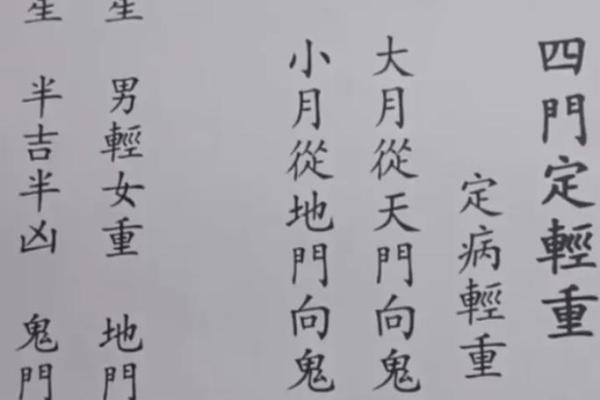 四門定輕重
定病輕重
大月從天門向鬼
小月從地門向鬼
男輕女重 地門
半吉半凶 鬼門